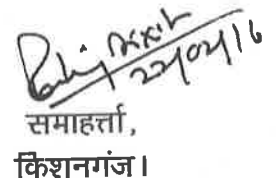 22/02/16
समाहर्त्ता,
किशनगंज।